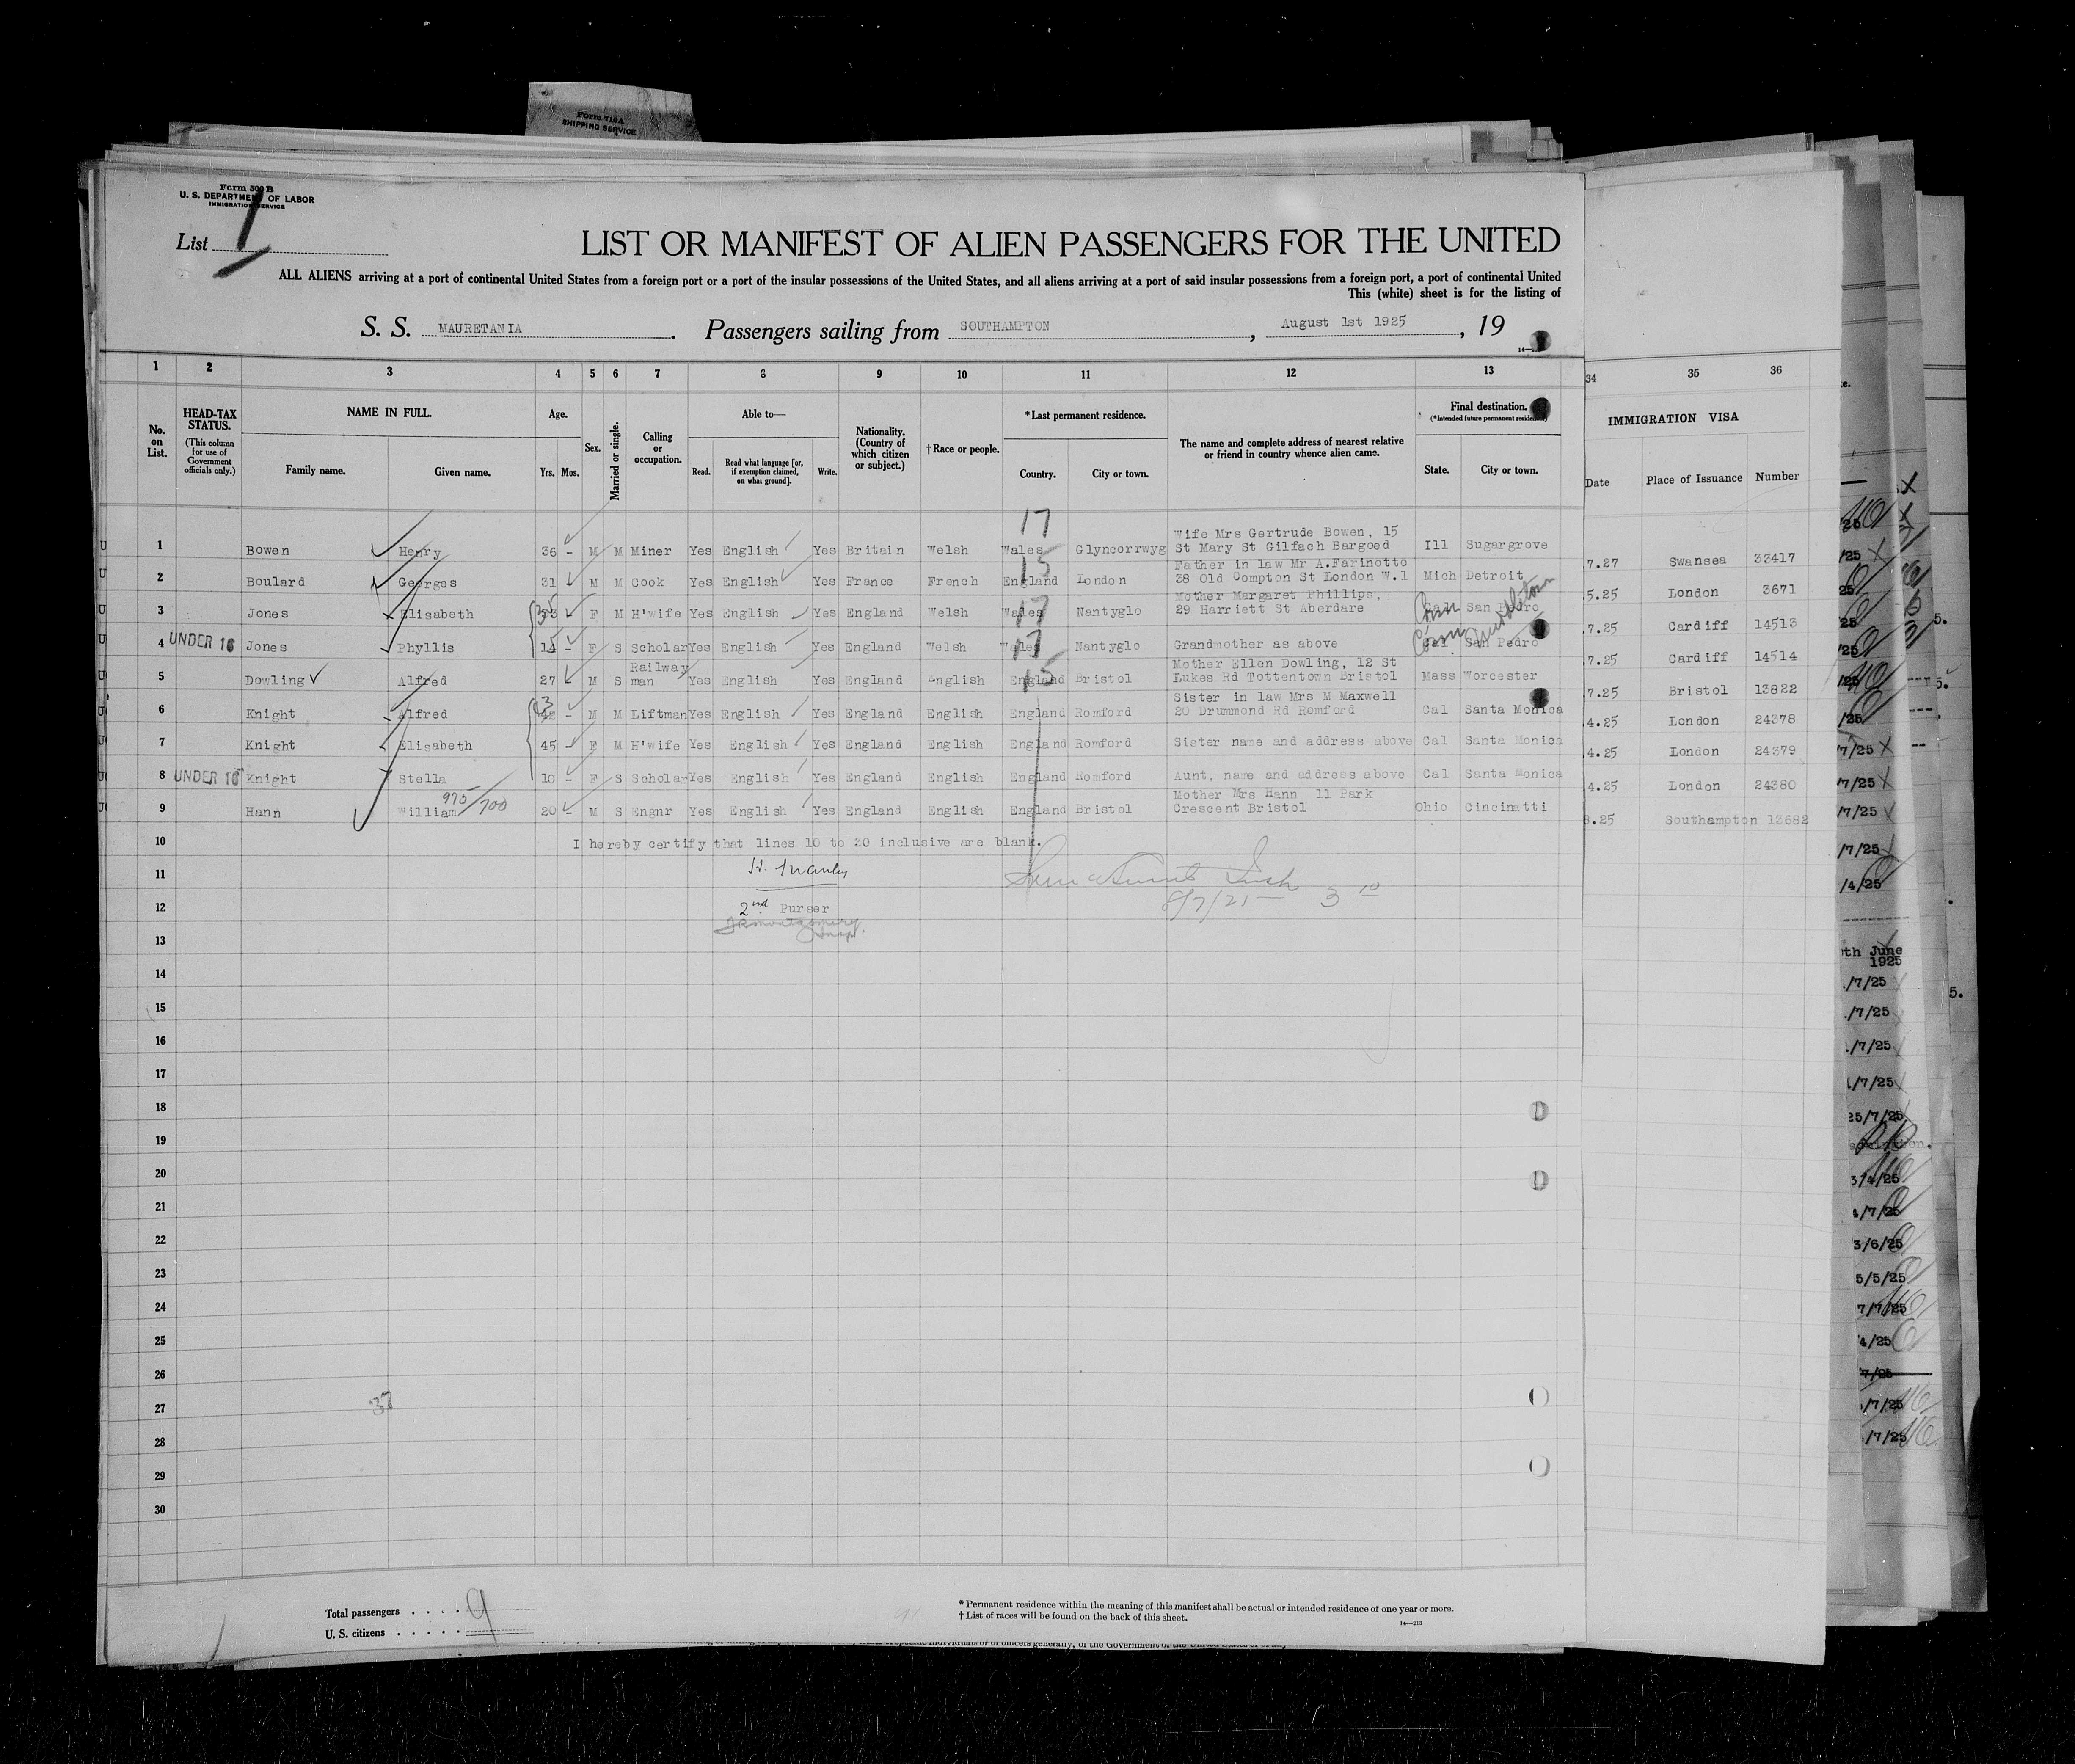 Form 716A
SHIPPING SERVICE
Form 500 B
U. S. DEPARTMENT OF LABOR
IMMIGRATION SERVICE
List 1
LIST OR MANIFEST OF ALIEN PASSENGERS FOR THE UNITED
ALL ALIENS arriving at a port of continental United States from a foreign port or a port of the insular possessions of the United States, and all aliens arriving at a port of said insular possessions from a foreign port, a port of continental United
This (white) sheet is for the listing of
S. S. MAURETANIA. Passengers sailing from SOUTHAMPTON, August 1st 1925, 19
1 2 3 4 5 6 7 8 9 10 11 12 13 34 35 36
No. on List.
HEAD-TAX STATUS.
(This column for use of Government officials only.)
NAME IN FULL.
Family name. Given name.
Age.
Yrs. Mos.
Sex.
Married or single.
Calling or occupation.
Able to—
Read. Read what language [or, if exemption claimed, on what ground]. Write.
Nationality. (Country of which citizen or subject.)
†Race or people.
*Last permanent residence.
Country. City or town.
The name and complete address of nearest relative or friend in country whence alien came.
Final destination.
(*Intended future permanent residence)
State. City or town.
IMMIGRATION VISA
Date Place of Issuance Number
17
Wife Mrs Gertrude Bowen, 15
1 Bowen Henry 36 - M M Miner Yes English Yes Britain Welsh Wales Glyncorrwyg St Mary St Gilfach Bargoed Ill Sugargrove 7.27 Swansea 33417
15
Father in law Mr A.Farinotto
2 Boulard Georges 31 M M Cook Yes English Yes France French England London 38 Old Compton St London W.1 Mich Detroit 5.25 London 3671
Mother Margaret Phillips,
3 Jones Elisabeth F M H'wife Yes English Yes England Welsh Wales Nantyglo 29 Harriett St Aberdare Cal San Pedro 7.25 Cardiff 14513
17
Conn
4 UNDER 16 Jones Phyllis 15 - F S Scholar Yes English Yes England Welsh Wales Nantyglo Grandmother as above Cal San Pedro 7.25 Cardiff 14514
Conn
Railway
Mother Ellen Dowling, 12 St
5 Dowling Alfred 27 M S man Yes English Yes England English England Bristol Lukes Rd Tottentown Bristol Mass Worcester 7.25 Bristol 13822
15
Sister in law Mrs M Maxwell
6 Knight Alfred - M M Liftman Yes English Yes England English England Romford 20 Drummond Rd Romford Cal Santa Monica 4.25 London 24378
7 Knight Elisabeth 45 - F M H'wife Yes English Yes England English England Romford Sister name and address above Cal Santa Monica 4.25 London 24379
8 UNDER 16 Knight Stella 10 - F S Scholar Yes English Yes England English England Romford Aunt, name and address above Cal Santa Monica 4.25 London 24380
975/700
Mother Mrs Hann 11 Park
9 Hann William 20 - M S Engnr Yes English Yes England English England Bristol Crescent Bristol Ohio Cincinatti 8.25 Southampton 13682
10 I hereby certify that lines 10 to 30 inclusive are blank.
11
12 2nd Purser
13
14
15
16
17
18
19
20
21
22
23
24
25
26
27 37
28
29
30
Total passengers . . . . 9
U. S. citizens . . . . .
* Permanent residence within the meaning of this manifest shall be actual or intended residence of one year or more.
† List of races will be found on the back of this sheet.
14—213
th June
1925
/7/25
/7/25
/7/25
/7/25
25/7/25
3/4/25
4/7/25
3/6/25
5/5/25
7/7/25
4/25
7/25
/7/25
/7/25